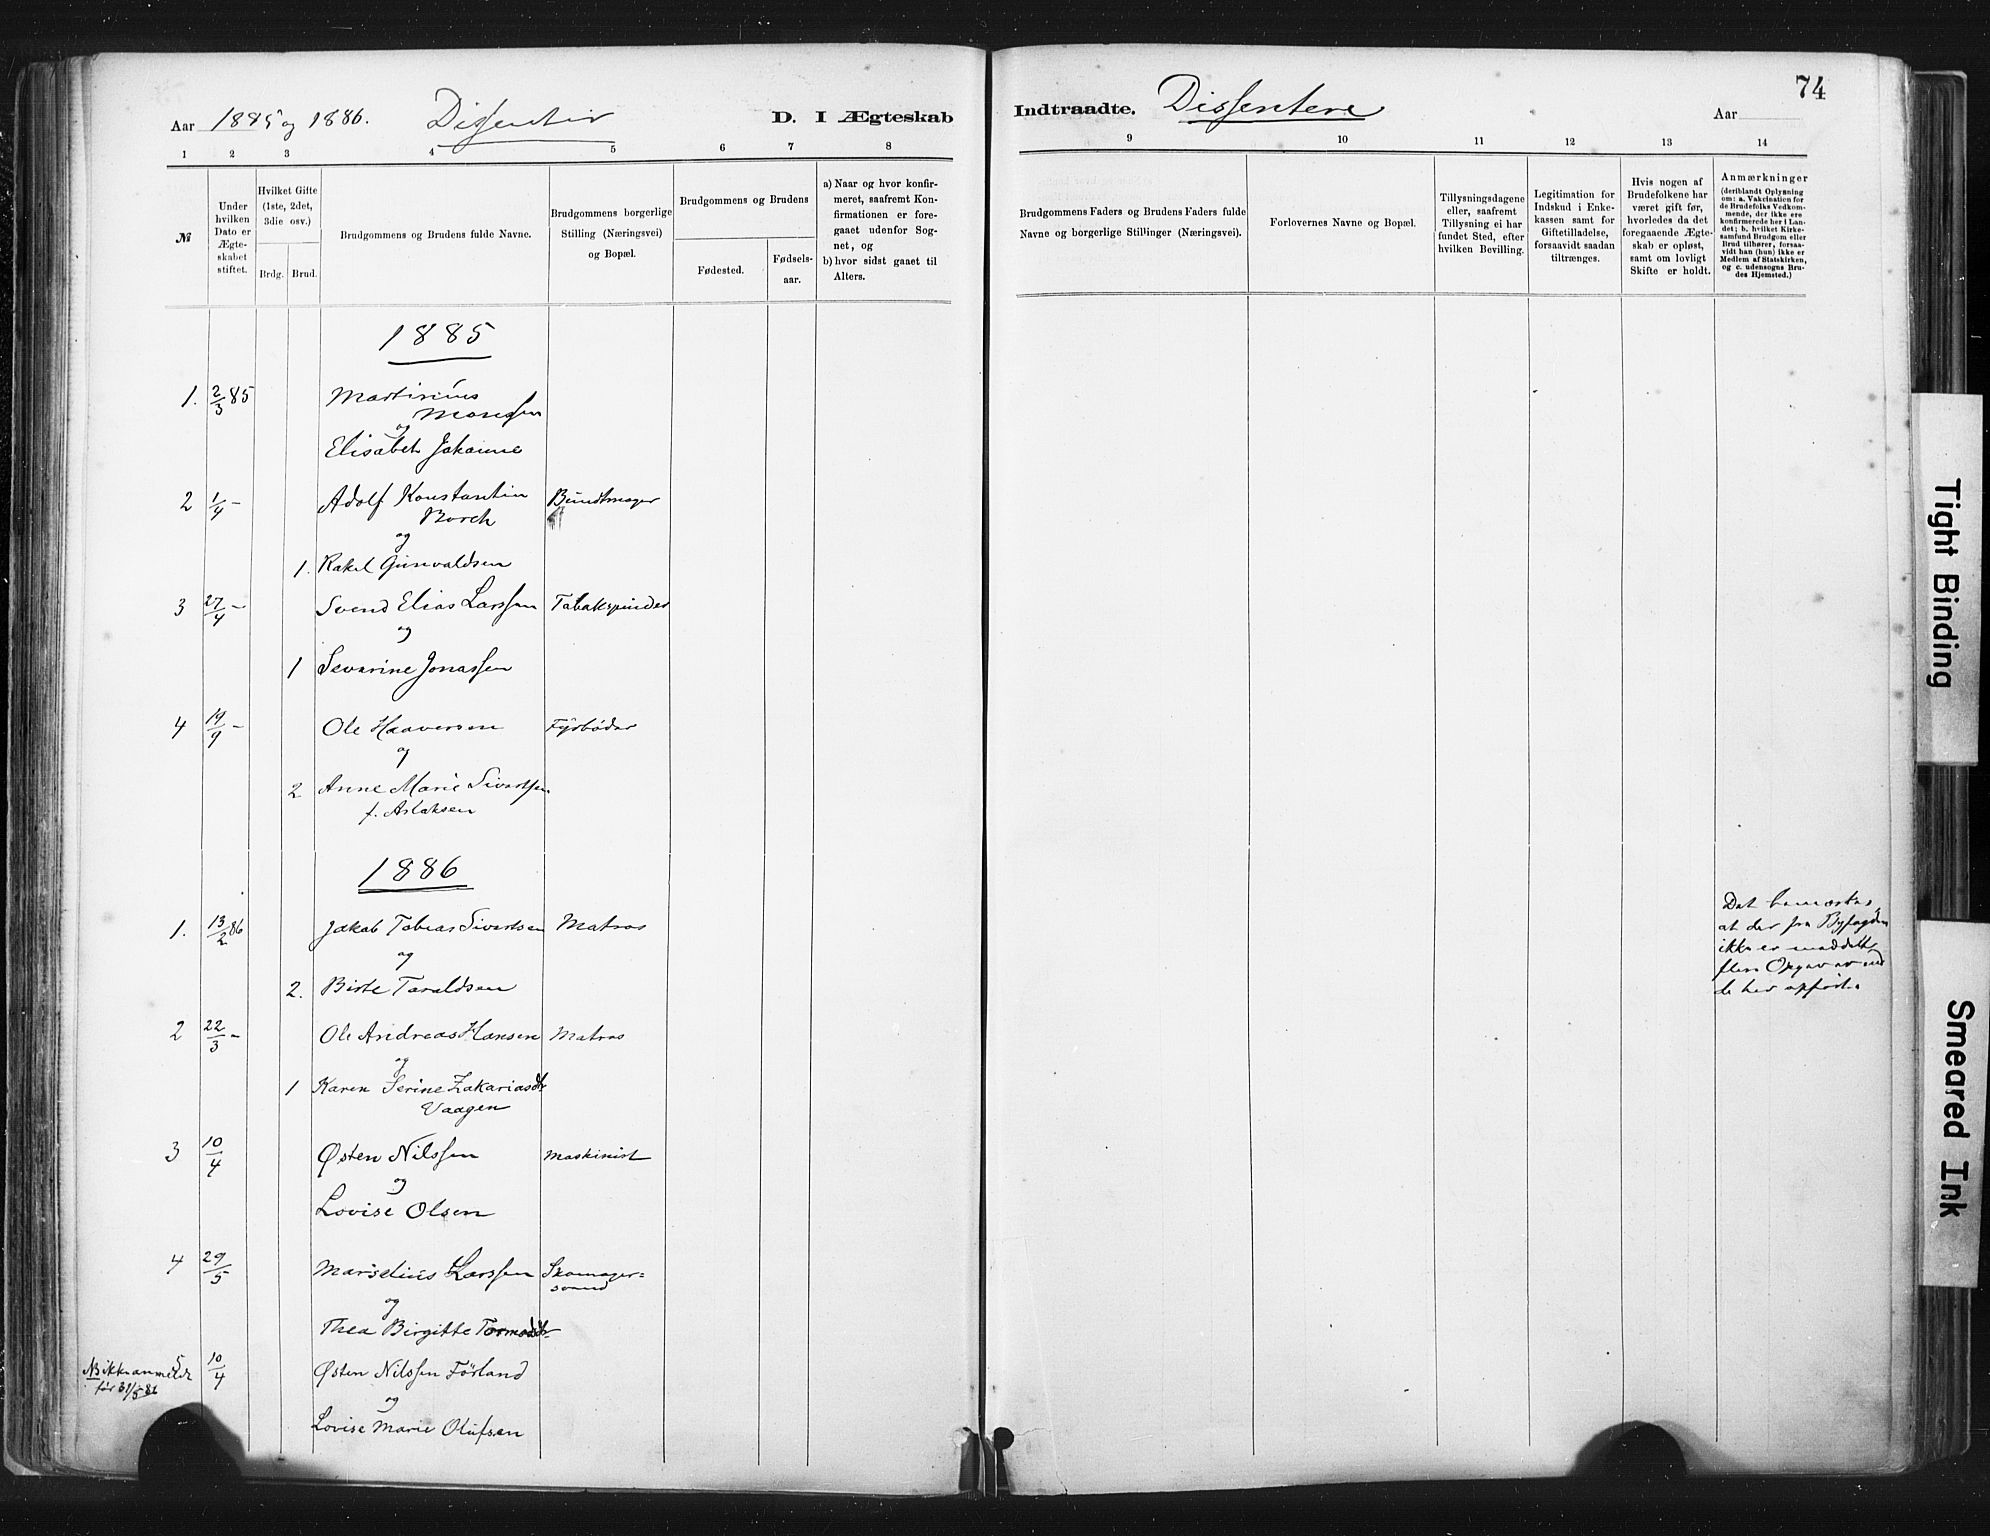 74
Aar 1885 og 1886. Dissenter D. I Ægteskab
Indtraadte. Dissentere Aar
1 2 3 4 5 6 7 8
9 10 11 12 13 14
№
Under
hvilken
Dato er
Ægte-
skabet
stiftet.
Hvilket Gifte
(1ste, 2det,
3die osv.)
Brdg. Brud.
Brudgommens og Brudens fulde Navne.
Brudgommens borgerlige
Stilling (Næringsvei)
og Bopæl.
Brudgommens og Brudens
Fødested.
Fødsels-
aar.
a) Naar og hvor konfir-
meret, saafremt Kon-
firmationen er fore-
gaaet udenfor Sog-
net, og
b) hvor sidst gaaet til
Alters.
Brudgommens Faders og Brudens Faders fulde
Navne og borgerlige Stillinger (Næringsvei).
Forlovernes Navne og Bopæl.
Tillysningsdagene
eller, saafremt
Tillysning ei har
fundet Sted, efter
hvilken Bevilling.
Legitimation for
Indskud i Enke-
kassen samt for
Giftetilladelse,
forsaavidt saadan
tiltrænges.
Hvis nogen af
Brudefolkene har
været gift før,
hvorledes da det
foregaaende Ægte-
skab er opløst,
samt om lovligt
Skifte er holdt.
Anmærkninger
(deriblandt Oplysning
om: a. Vakcination for
de Brudefolks Vedkom-
mende, der ikke ere
konfirmerede her i Lan-
det; b. hvilket Kirke-
samfund Brudgom eller
Brud tilhører, forsaa-
vidt han (hun) ikke er
Medlem af Statskirken,
og c. udensogns Bru-
des Hjemsted.)
1885
1. 2/3 85 Martinius
Monssen
og
Elisabet Johanne
2 1/4 – Adolf Konstantin Bundtmager
Borch
og
1. Rakel Gunvaldsen
3 27/4 – Svend Elias Larssen Tobakspinder
og
1 Severine Jonassen
4 19/9 – Ole Haaversen Fyrbøder
og
2 Anne Marie Sivertsen
f. Aslaksen
1886
1. 13/2 86 Jakob Tobias Sivertsen Matros
og
2. Birte Taraldsen
Det bemærkes,
at der fra Byfogden
ikke er meddelt
flere Opgaver end
de her opført.
2 22/3 – Ole Andreas Hansen Matros
og
1 Karen Serine Zakariasdtr
Vaagen
3 10/4 Østen Nilssen Maskinist
og
Lovise Olsen
4 29/5 Marselius Larssen Skomager=
svend
og
Thea Birgitte Tormodsdtr
5 10/4 Østen Nilssen Förland
NB ikke anmeldt
før 31/5 86
og
Lovise Marie Olufsen
Tight Binding
Smeared Ink